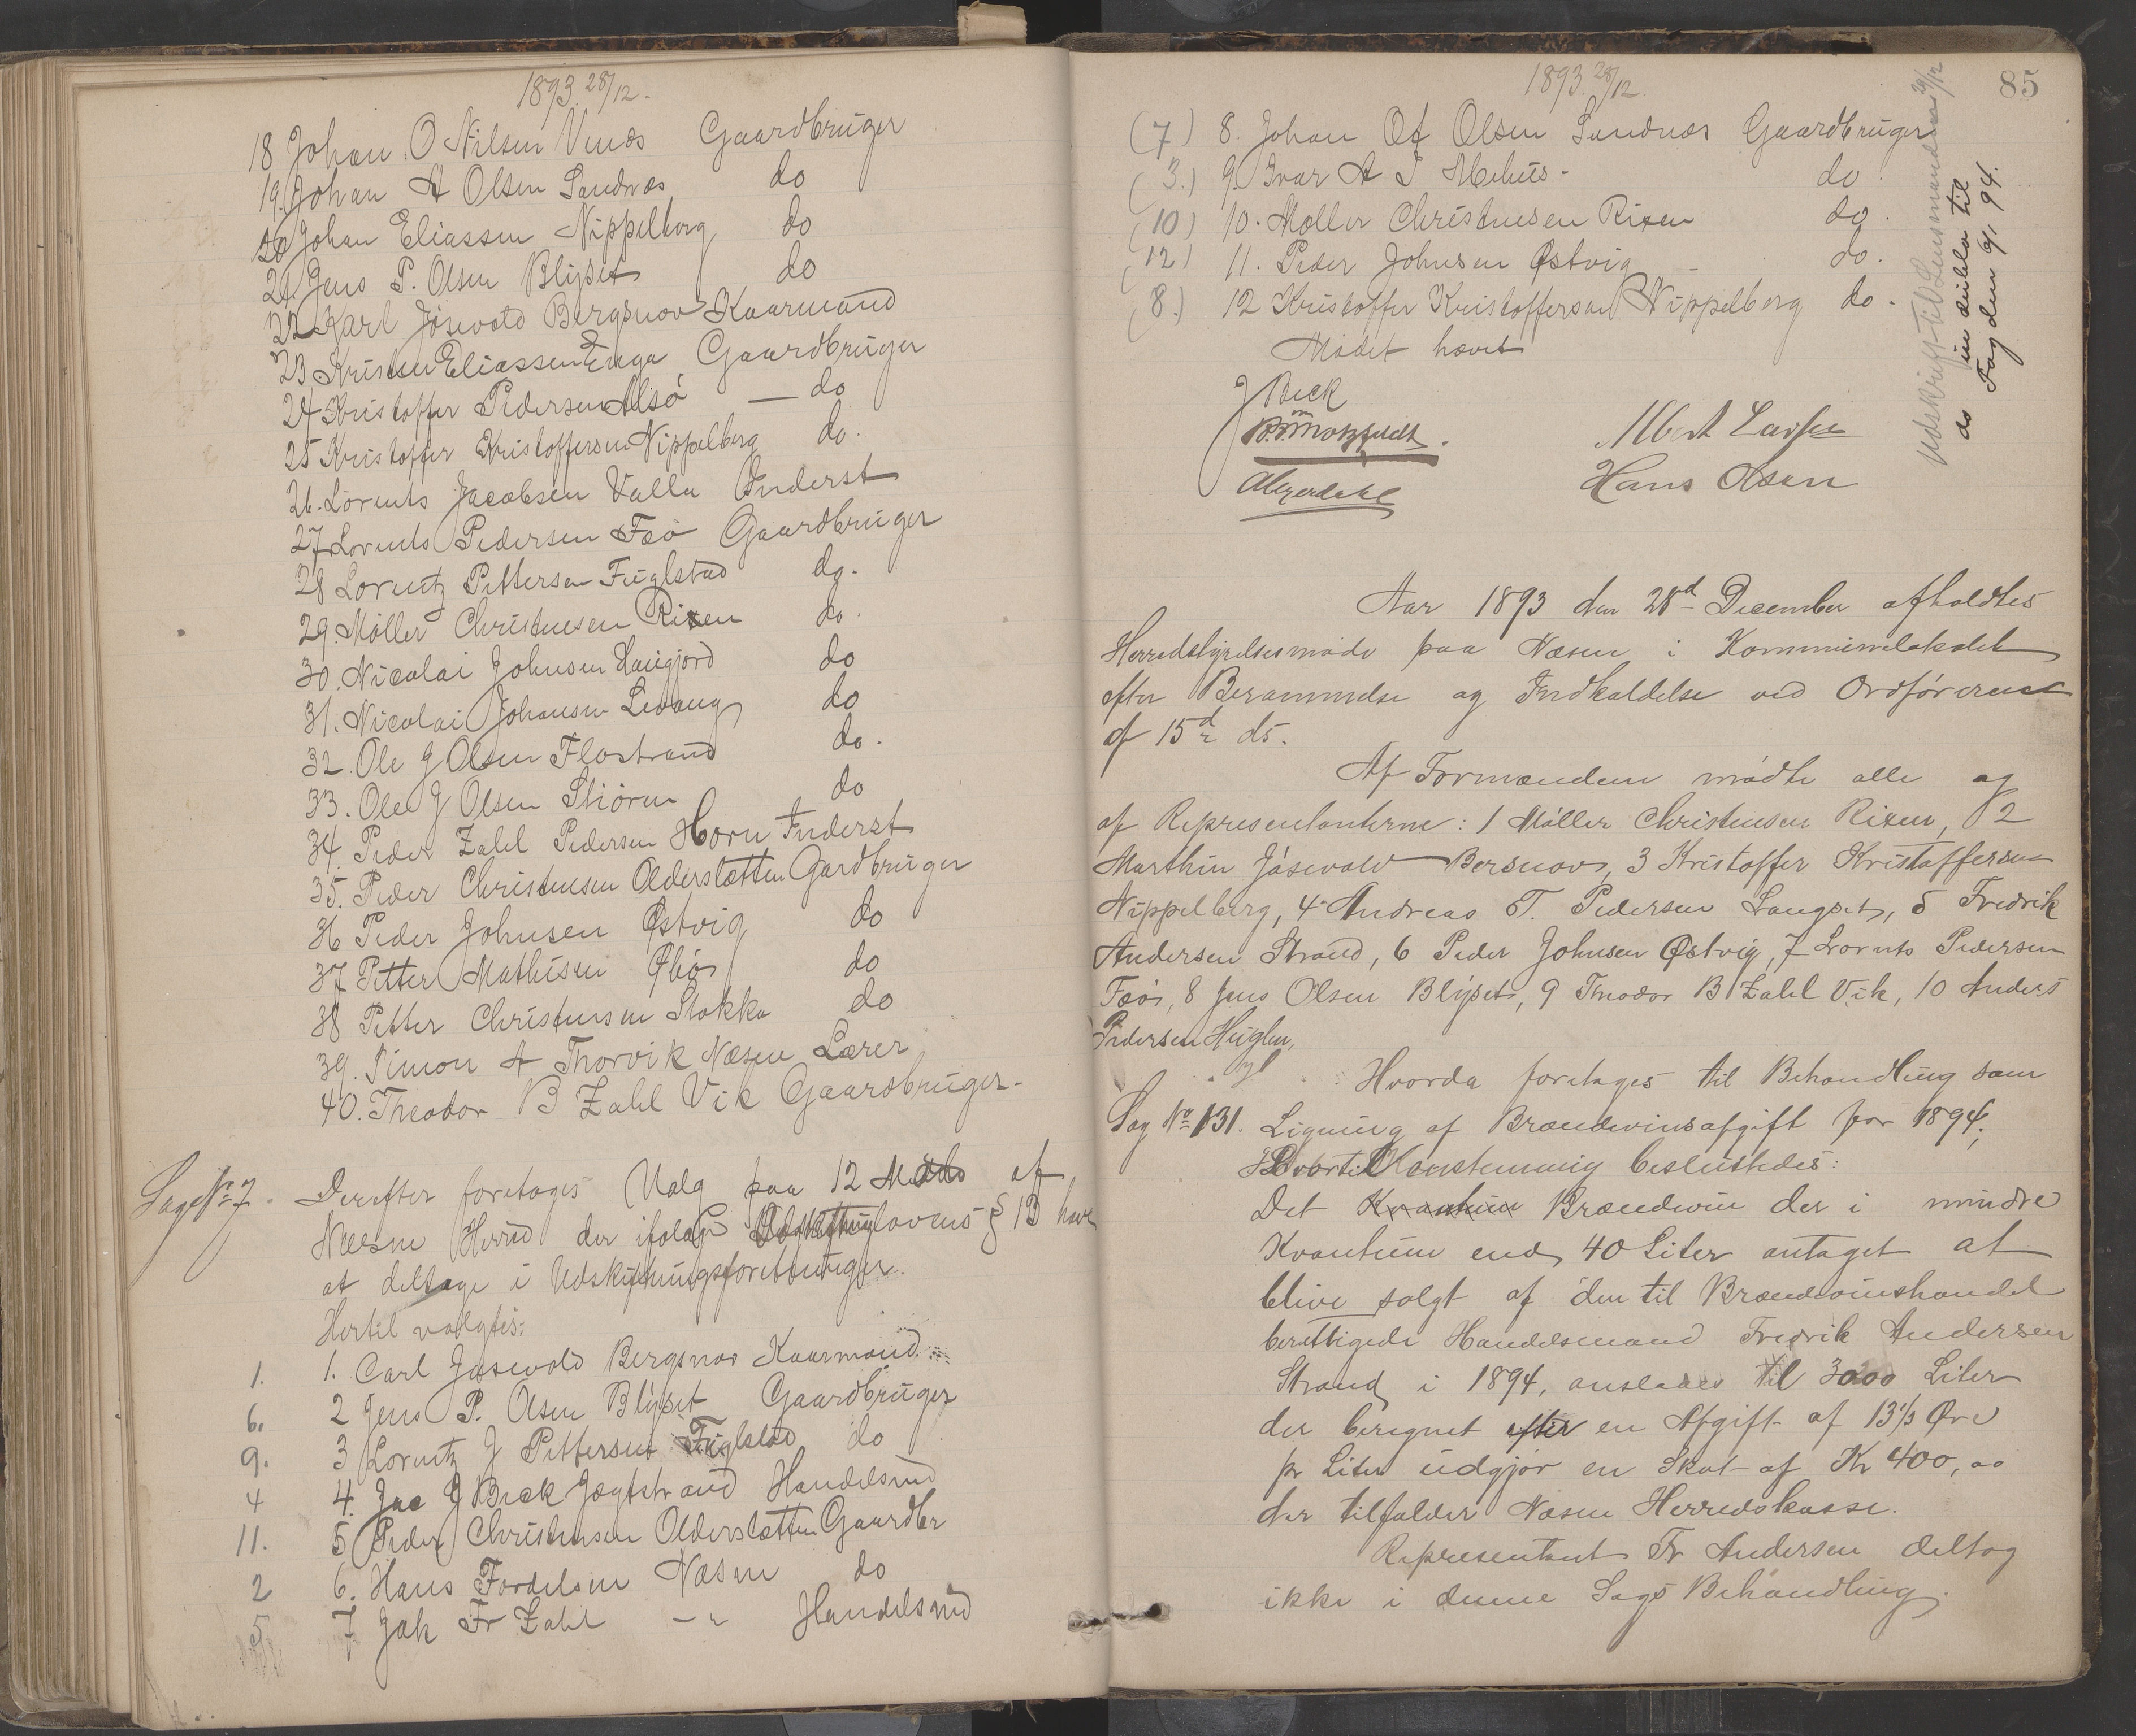 1893 28/12.
18 Johan O Nilsen Vinæs Gaardbruger
19. Johan A Olsen Sandnæs do
20 Johan Eliassen Nippelberg do
21. Jens P. Olsen Blijset do
22 Karl Jøsevold Bergsnov Kaarmand
23 Kristen Eliassen Enga Gaardbruger
24 Kristoffer Pedersen Alsó — do
25 Kristoffer Kristoffersen Nippelberg do.
26. Lorents Jacobsen Valla Inderst
27 Lorents Pedersen Fæø Gaardbruger
28 Lorentz Pettersen Fuglstad do.
29. Møller Christensen Rixen do.
30. Nicolai Johnsen Haugjord do
31. Nicolai Johansen Levang do
32. Ole J Olsen Flostrand do.
33. Ole J Olsen Stiøren do
34. Peder Zahl Pedersen Horn Inderst
35. Peder Christensen Olderstætten Gardbruger
36 Peder Johnsen Østvig do
37 Petter Mathisen Øbø do
38 Petter Christensen Stokka do
39. Simon A Thorvik Næsne Lærer
40. Theodor B Zahl Vik Gaardbruger.
Sag No 7. Derefter foretoges Valg paa 12 Mænd af
Næsne Herred der ifølge Udskiftningslovens § 13 have
at deltage i Udskiftningsforretninger.
Hertil valgtes:
1. 1. Carl Jøsevold Bergsnov Kaarmand
6. 2 Jens P. Olsen Blijset Gaardbruger
9. 3 Lorentz J Pettersen Fuglstad do
4 4. Jac J Bech Jægtstrand Handelsmd
11. 5 Peder Christensen Olderstætten Gaardbr
2 6. Hans Fordelsen Næsne do
5 7 Jak Fr Zahl - " Handelsmd
1893 28/12.
85
(7) 8. Johan Of Olsen Sandnæs Gaardbruger
(3.) 9. Ivar A J Mehus - do.
(10) 10. Møller Christensen Rixen do.
(12) 11. Peder Johnsen Østvig - do.
(8.) 12 Kristoffer Kristoffersen Nippelberg do.
Mødet hævet
J Beck
Albert Larsen
Hans Olsen
Udskrift til Lensmanden 29/12
do
til
den 6/1 94.
Aar 1893 den 28d December afholdtes
Herredstyrelsesmøde paa Næsne i Kommunelokalet
efter Berammelse og Indkaldelse ved Ordføreren
af 15d ds.
Af Formændene mødte alle og
af Representanterne: 1 Møller Christensen Rixen, 2
Marthin Jøsevold Bersnov, 3 Kristoffer Kristoffersen
Nippelberg, 4 Andreas T. Pedersen Langset, 5 Fredrik
Andersen Strand, 6 Peder Johnsen Østvig, 7 Lorents Pedersen
Fæø, 8 Jens Olsen Blijset, 9 Theodor B Zahl Vik, 10 Anders
Pedersen Huglen,
Hvorda foretages til Behandling som
Sag No 131. Ligning af Brændevinsafgift for 1894;
Hvortil Konstemmig besluttedes:
Det Kvantum Brændevin der i mindre
Kvantum end 40 Liter antaget at
blive solgt af den til Brændevinshandel
berettigede Handelsmand Fredrik Andersen
Strand i 1894, anslaaes til 3000 Liter
der beregnet efter en Afgift af 13 1/3 Øre
pr Liter udgjør en Skat af Kr 400,00
der tilfalder Næsne Herredskasse.
Representant Fr Andersen deltog
ikke i denne Sags Behandling.